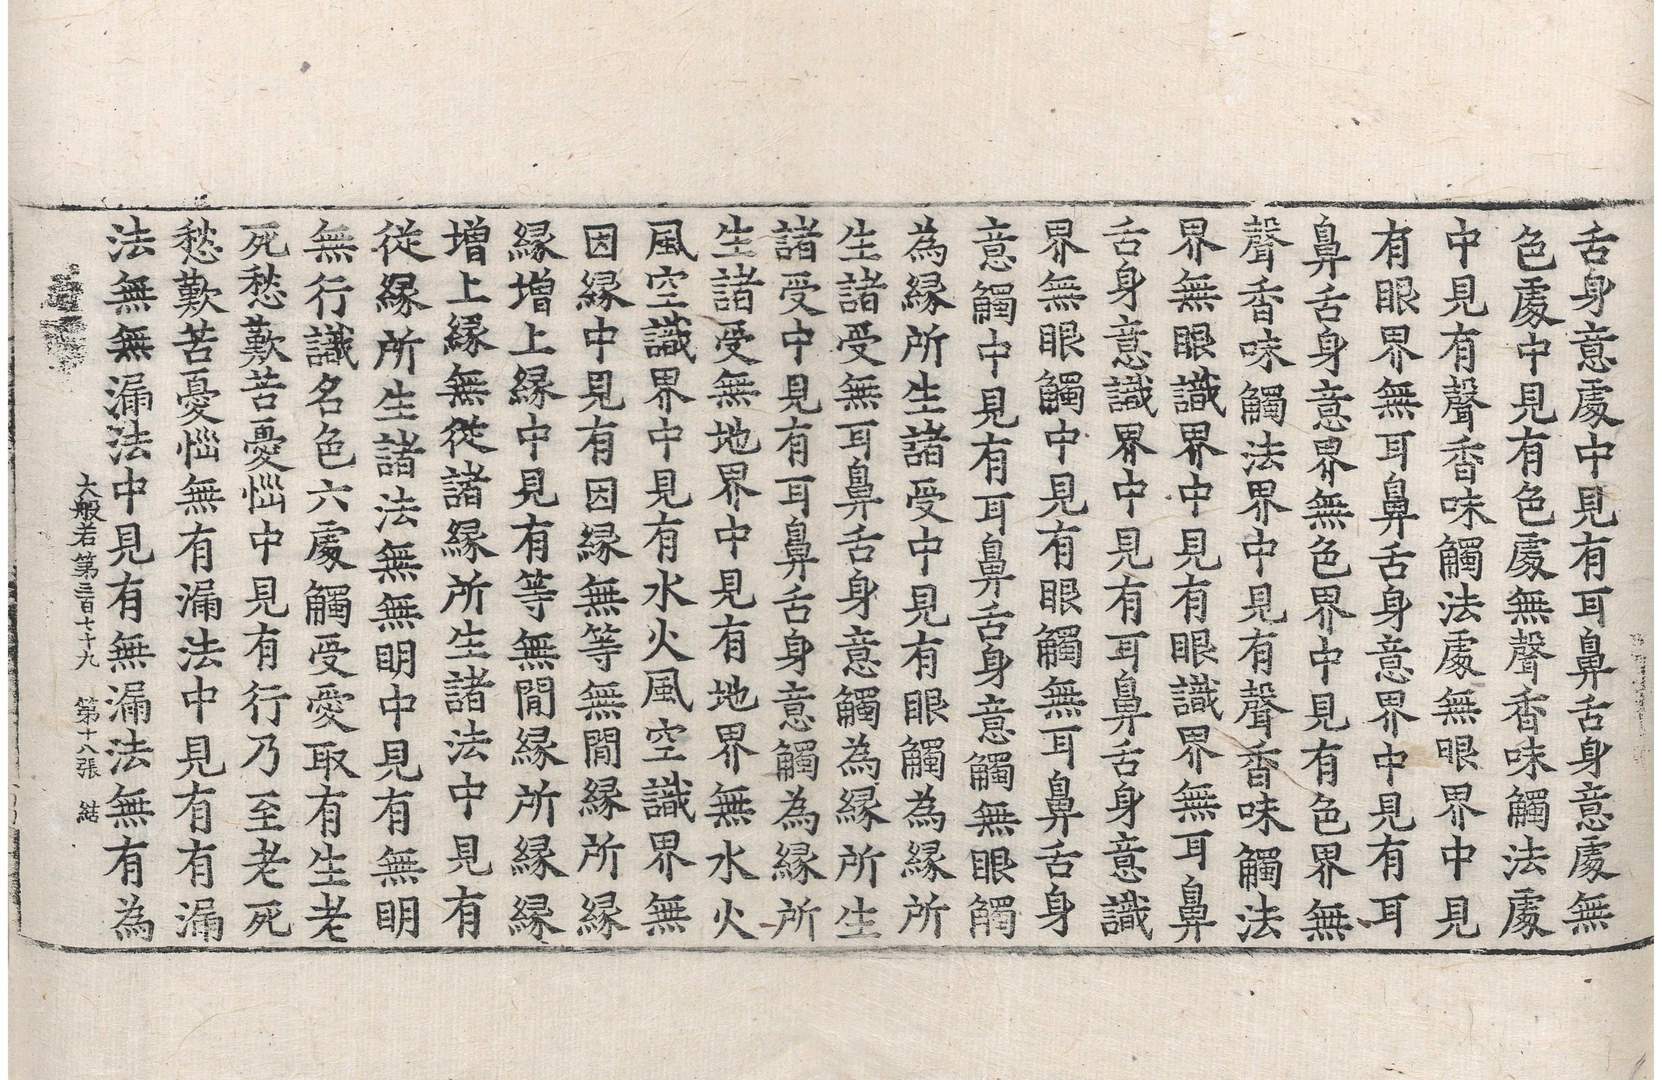 舌身意處中見有耳鼻舌身意處無
色處中見有色處無聲香味觸法處
中見有聲香味觸法處無眼界中見
有眼界無耳鼻舌身意界中見有耳
鼻舌身意界無色界中見有色界無
聲香味觸法界中見有聲香味觸法
界無眼識界中見有眼識界無耳鼻
舌身意識界中見有耳鼻舌身意識
界無眼觸中見有眼觸無耳鼻舌身
意觸中見有耳鼻舌身意觸無眼觸
為縁所生諸受中見有眼觸為縁所
生諸受無耳鼻舌身意觸為縁所生
諸受中見有耳鼻舌身意觸為縁所
生諸受無地界中見有地界無水火
風空識界中見有水火風空識界無
因縁中見有因縁無等無閒縁所縁
縁增上縁中見有等無閒縁所縁縁
增上縁無從諸縁所生諸法中見有
從縁所生諸法無無明中見有無明
無行識名色六處觸受愛取有生老
死愁歎苦憂惱中見有行乃至老死
愁歎苦憂惱無有漏法中見有有漏
法無無漏法中見有無漏法無有為
大般若第三百七十九 第十八張 結